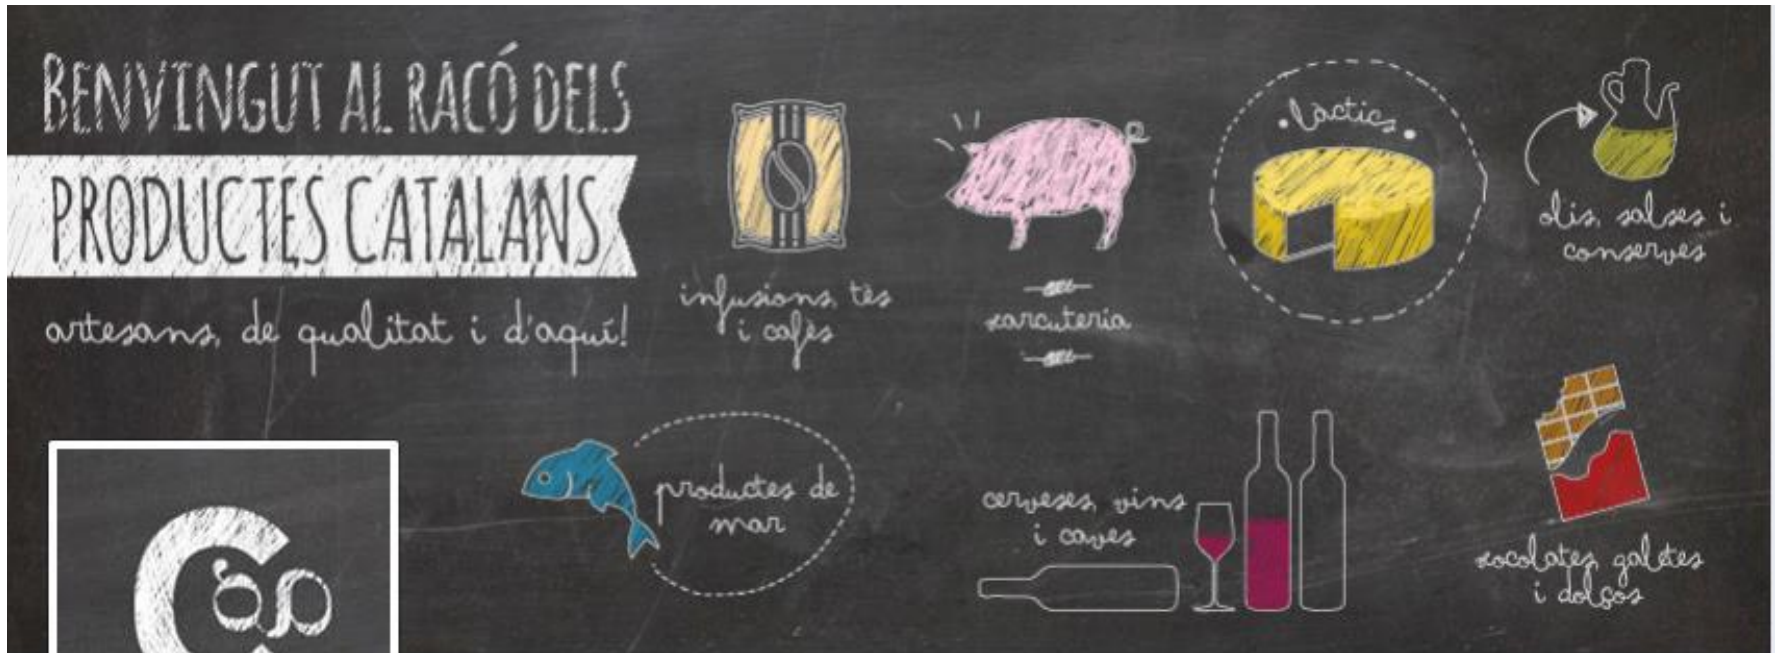 BENVINGUT AL RACÓ DELS
PRODUCTES CATALANS
artesans, de qualitat i d'aquí!
infusions, tès
i cafès
xarcuteria
làctics
olis, salses i
conserves
productes de
mar
cerveses, vins
i caves
xocolates, galetes
i dolços